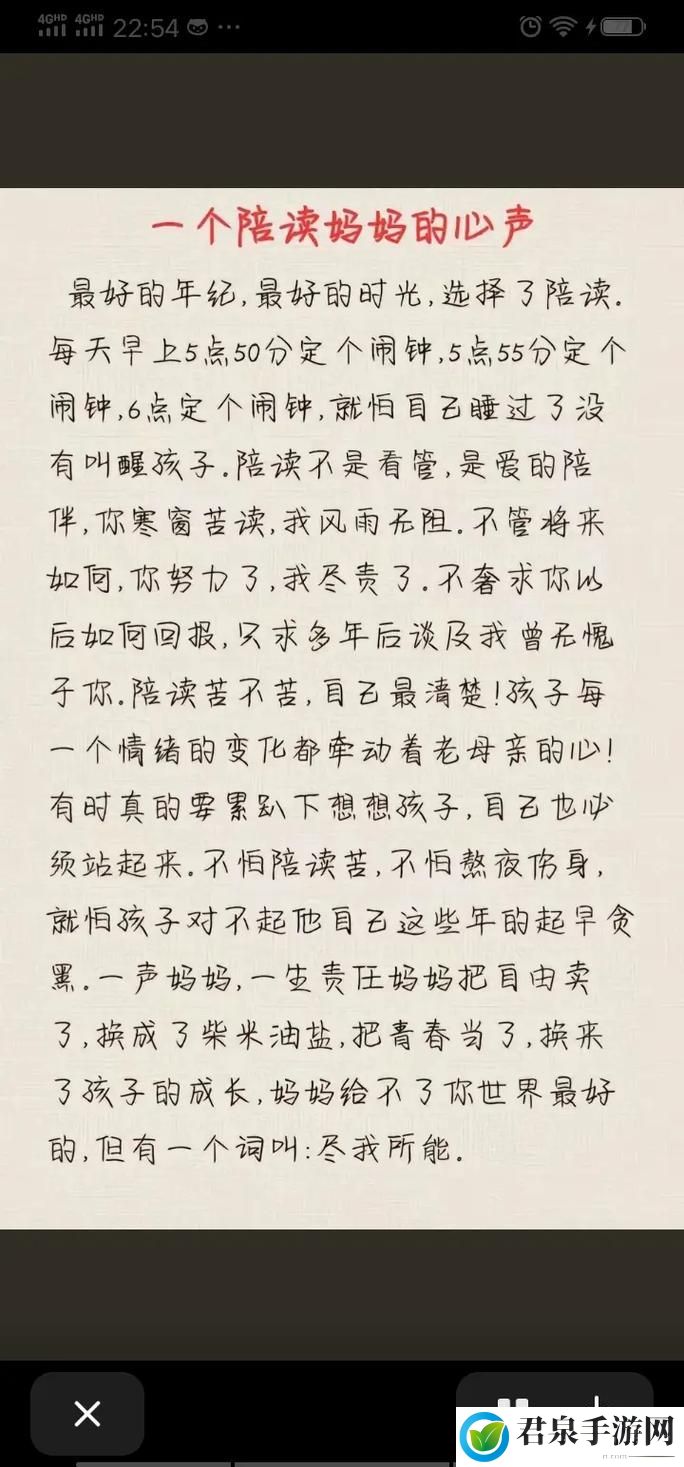 4GHD 4GHD 22:54 ...
一个陪读妈妈的心声
最好的年纪,最好的时光,选择了陪读.
每天早上5点50分定个闹钟,5点55分定个
闹钟,6点定个闹钟,就怕自己睡过了没
有叫醒孩子.陪读不是看管,是爱的陪
伴,你寒窗苦读,我风雨无阻.不管将来
如何,你努力了,我尽责了.不奢求你以
后如何回报,只求多年后谈及我曾无愧
于你.陪读苦不苦,自己最清楚!孩子每
一个情绪的变化都牵动着老母亲的心!
有时真的要累趴下想想孩子,自己也必
须站起来.不怕陪读苦,不怕熬夜伤身,
就怕孩子对不起他自己这些年的起早贪
黑.一声妈妈,一生责任妈妈把自由卖
了,换成了柴米油盐,把青春当了,换来
了孩子的成长,妈妈给不了你世界最好
的,但有一个词叫:尽我所能.
君泉手游网